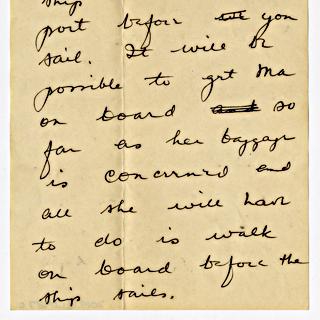 ship
port before you
sail. It will be
possible to get Ma
on board so
far as her baggage
is concerned and
all she will have
to do is walk
on board before the
ship sails.